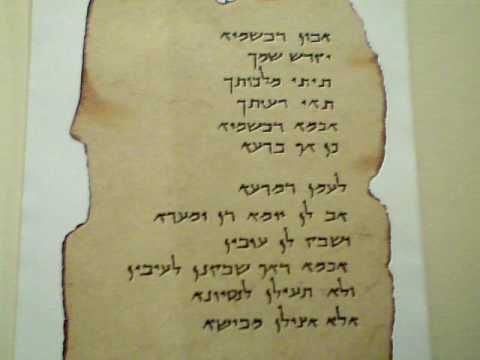 אבון דבשמיא
יקדש שמך
תיתי מלכותך
תהי רעותך
אכמא דבשמיא
כן אף ברעא
לחמן
הב לן יומא דן ומחרא
ושבק לן חובין
אכמא דאף שבקנן לחיבין
ולא תעילן לנסיונא
אלא אצילן מבישא